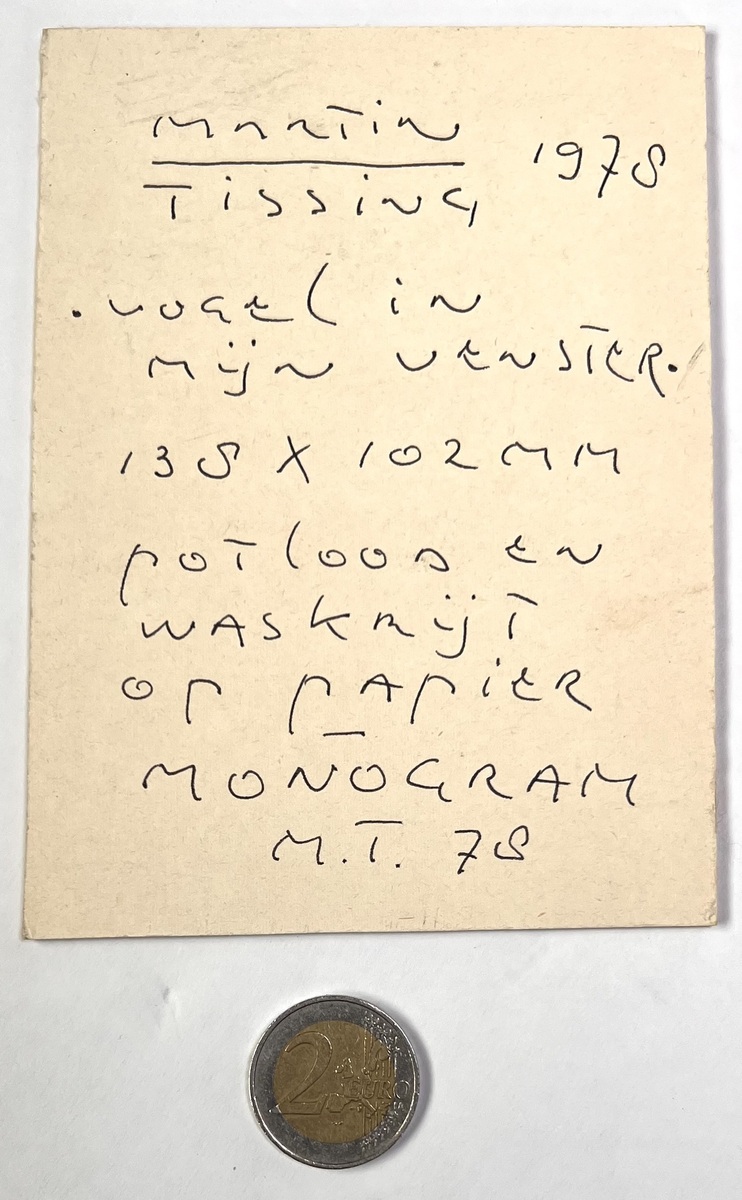 MARTIN 1978
TISSING
. VOGEL IN
MIJN VENSTER.
138 X 102 MM
POTLOOD EN
WASKRIJT
OP PAPIER
MONOGRAM
M.T. 78
2 EURO